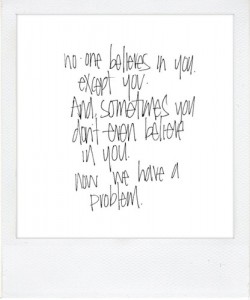 no one believes in you.
except you.
And sometimes you
don't even believe
in you.
now we have a
problem.